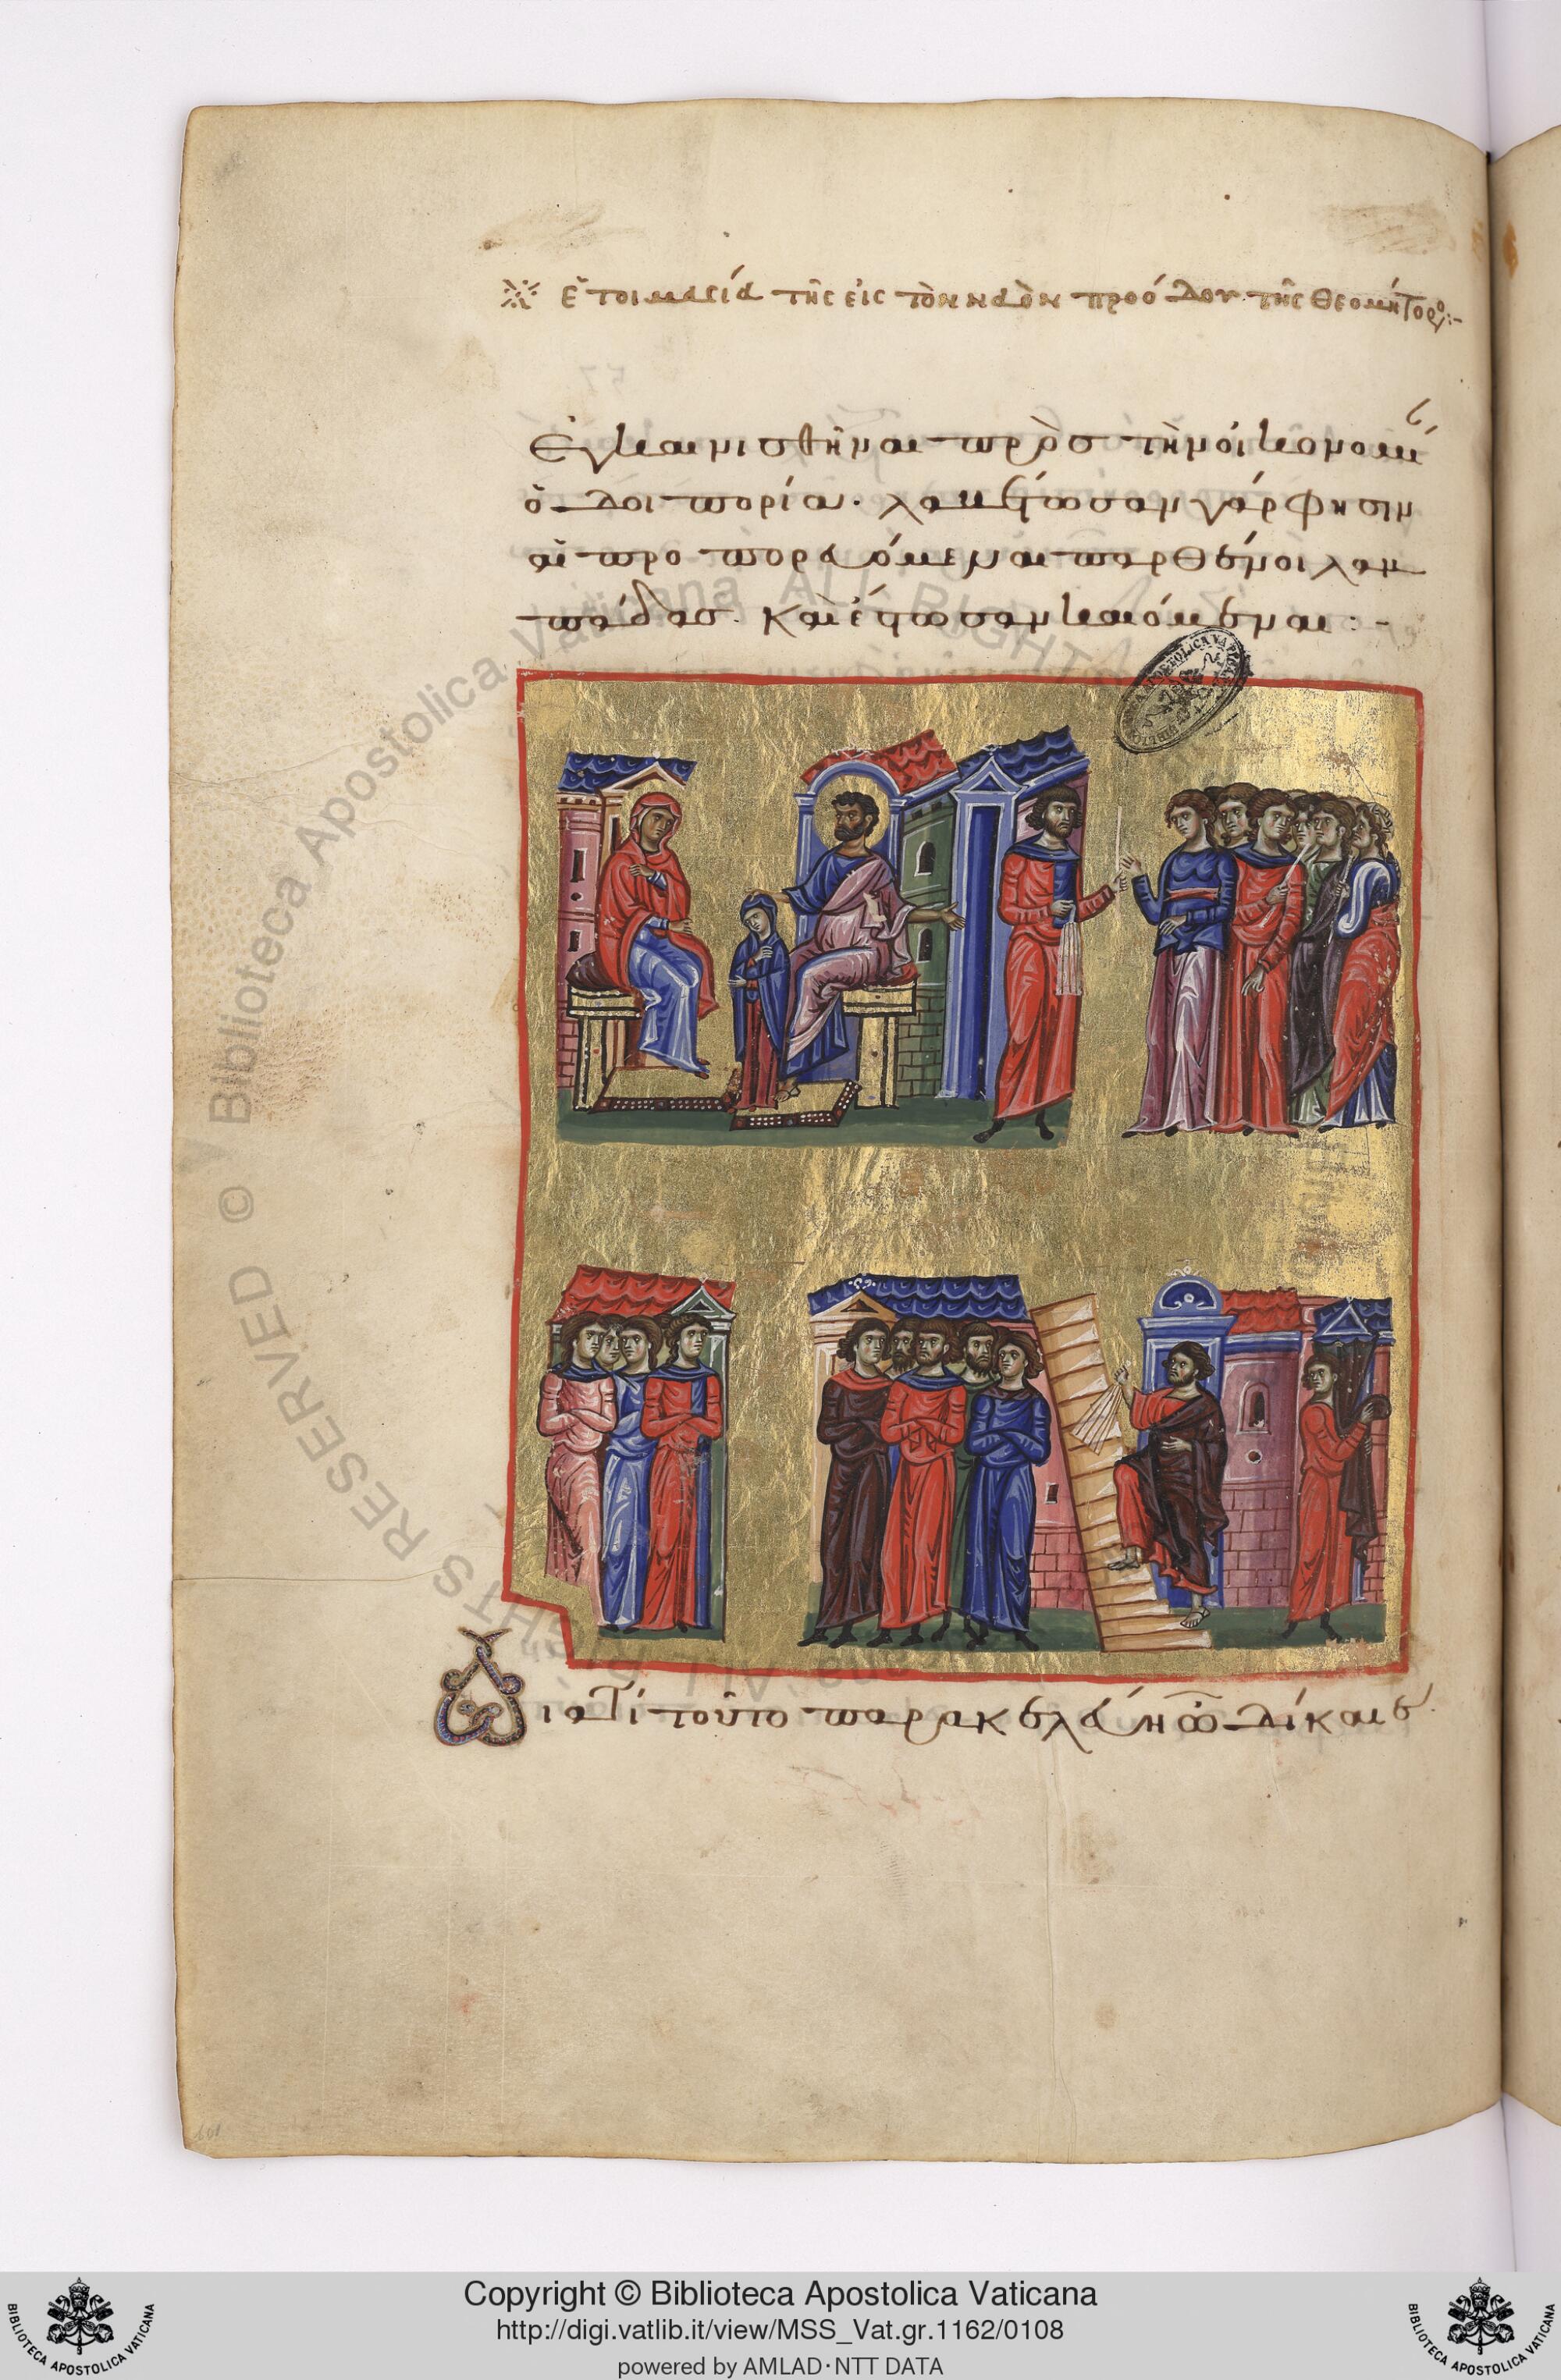 Ἑτοιμασία τῆς εἰς τὸν ναὸν προόδου τῆς Θεομήτορο:-
ἐγκαινισθῆναι πρὸς τὴν οἰκονομου
ὁδοιπορίαν. λαβέτωσαν γάρ φησιν
αἱ προπορευόμεναι παρθένοι λαμ
πάδας. καὶ ἔστωσαν καιόμεναι:-
Διατί τοῦτο παρακελεύῃ ὦ δίκαιε.
© Biblioteca Apostolica Vaticana ALL RIGHTS RESERVED
Copyright © Biblioteca Apostolica Vaticana
http://digi.vatlib.it/view/MSS_Vat.gr.1162/0108
powered by AMLAD·NTT DATA
BIBLIOTECA APOSTOLICA VATICANA
BIBLIOTECA APOSTOLICA VATICANA